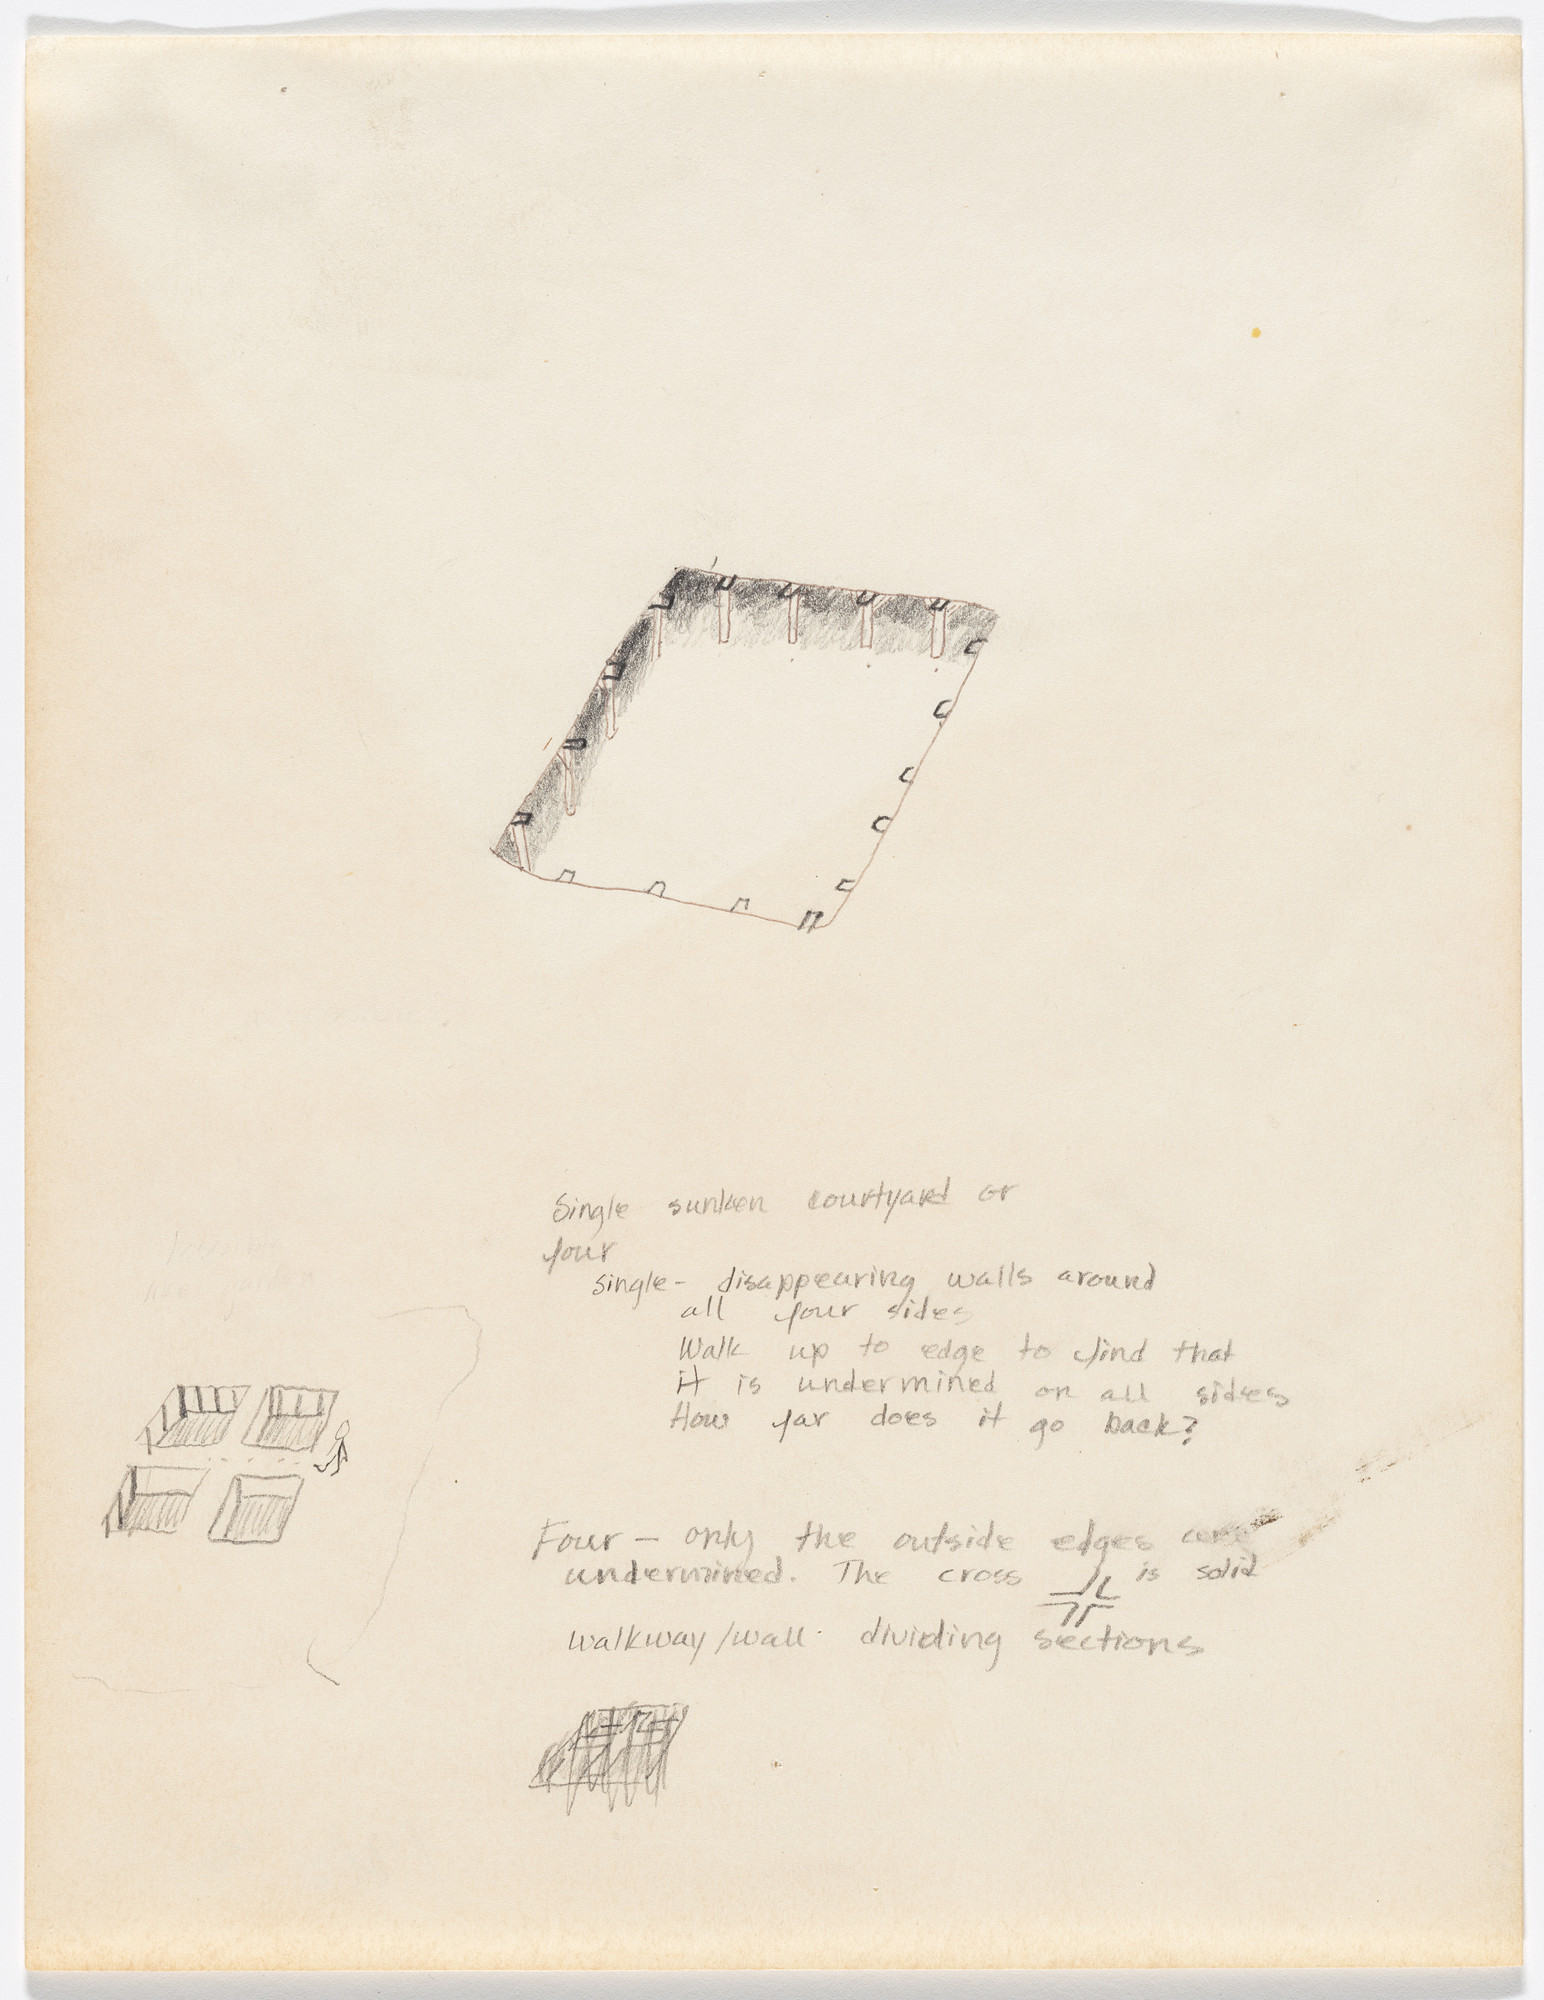 Single sunken courtyard or
four
single - disappearing walls around
all four sides
Walk up to edge to find that
it is undermined on all sides
How far does it go back?
Four — only the outside edges are
undermined. The cross is solid
walkway/wall dividing sections